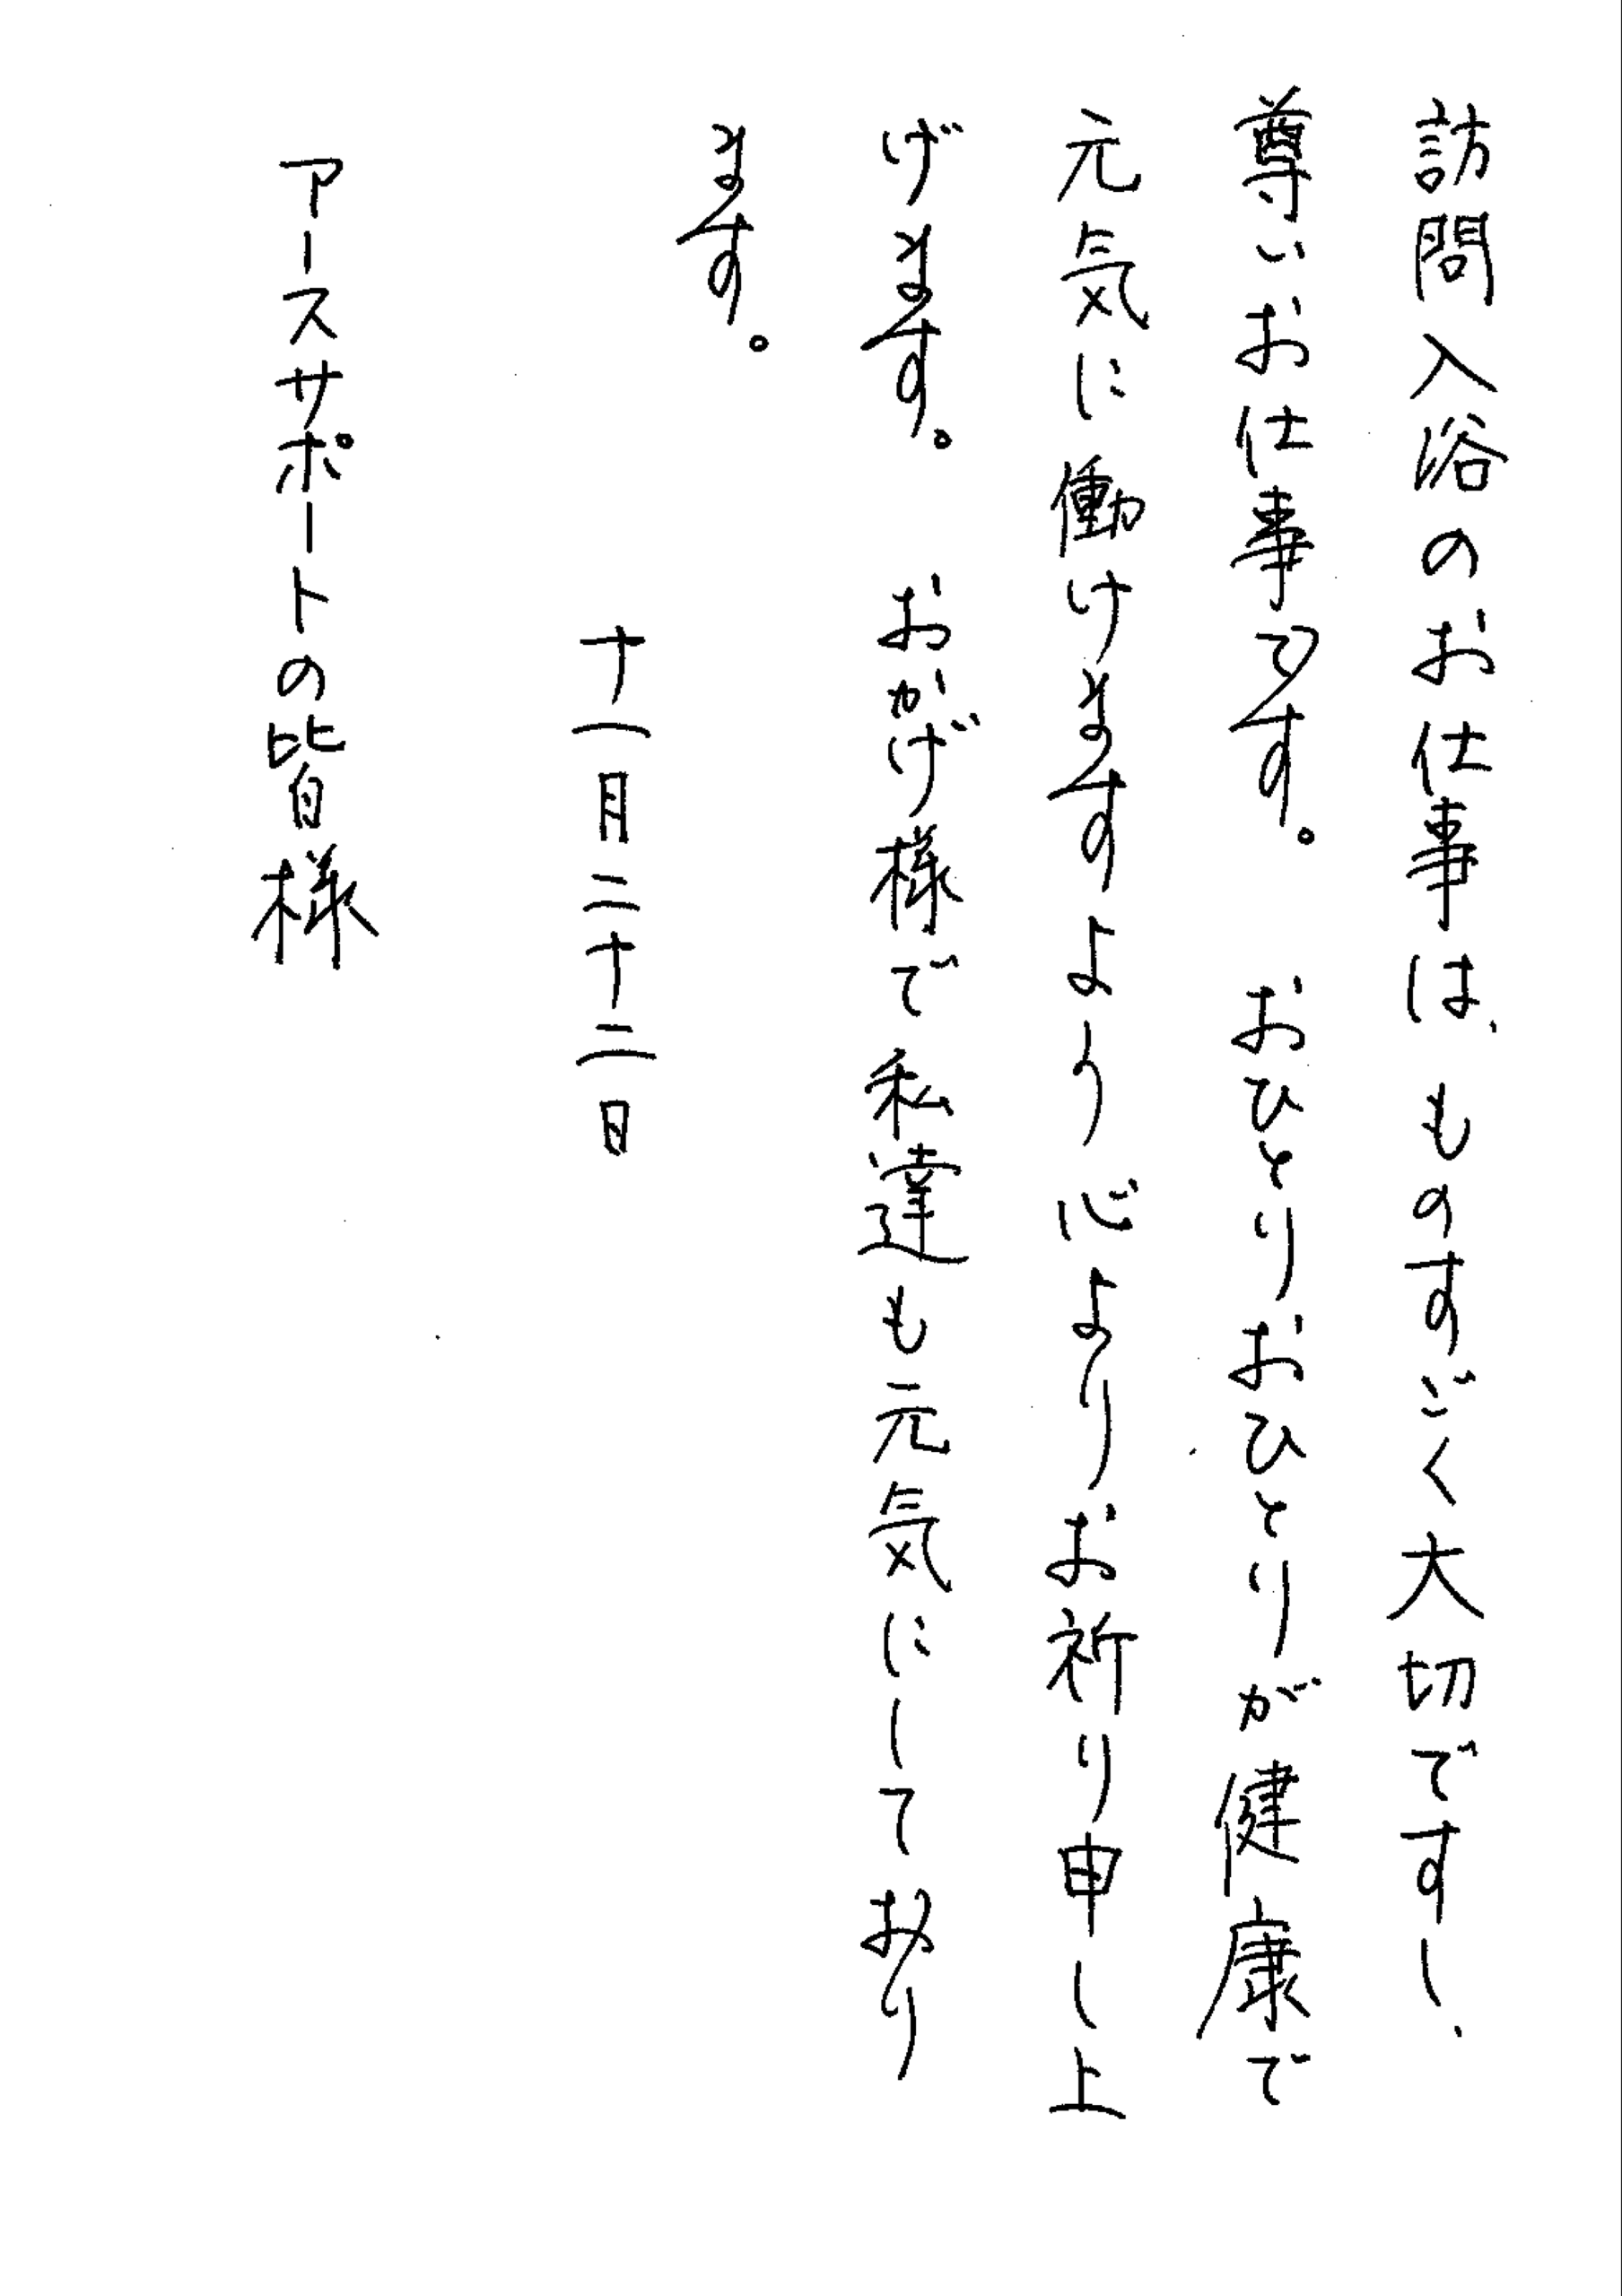 訪問入浴のお仕事は、ものすごく大切ですし、
尊いお仕事です。 おひとりおひとりが健康で
元気に働けますよう心よりお祈り申し上
げます。 おかげ様で私達も元気にしており
ます。
十一月二十二日
アースサポートの皆様